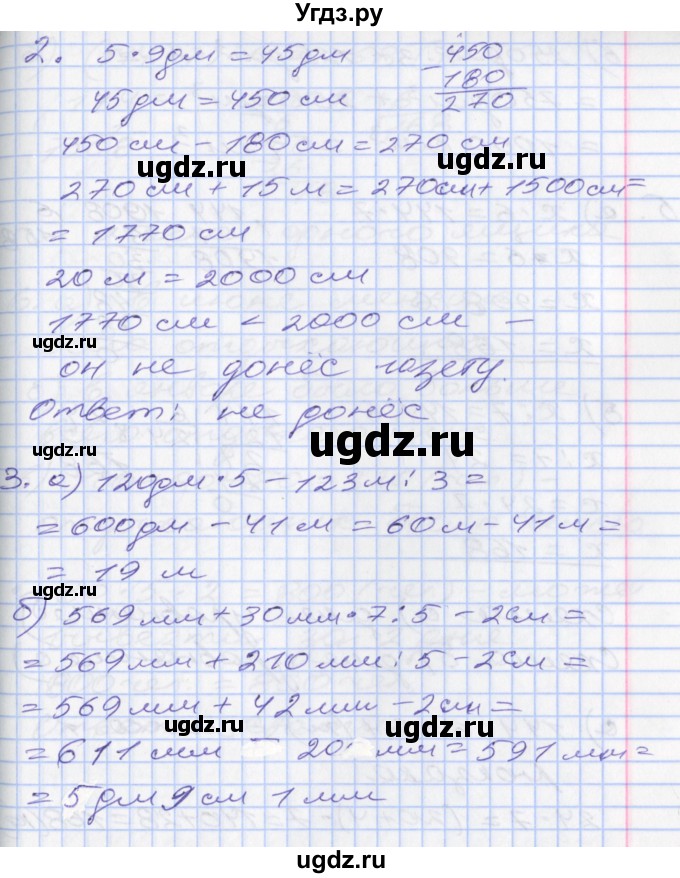 Угдз.ру
2. 5 · 9дм = 45 дм
45 дм = 450 см
- 450
180
270
450 см - 180 см = 270 см
ugdz.ru
ugdz.ru
270 см + 15 м = 270 см + 1500 см =
= 1770 см
20 м = 2000 см
1770 см < 2000 см —
ugdz.ru
он не донёс газету.
Ответ: не донёс
ugdz.ru
3. а) 120дм · 5 - 123 м : 3 =
= 600 дм - 41 м = 60 м - 41 м =
= 19 м
ugdz.ru
б) 569 мм + 30 мм · 7 : 5 - 2 см =
= 569 мм + 210 мм : 5 - 2 см =
= 569 мм + 42 мм - 2 см =
= 611 мм — 20 мм = 591 мм =
ugdz.ru
ugdz.ru
= 5 дм 9 см 1 мм
ugdz.ru